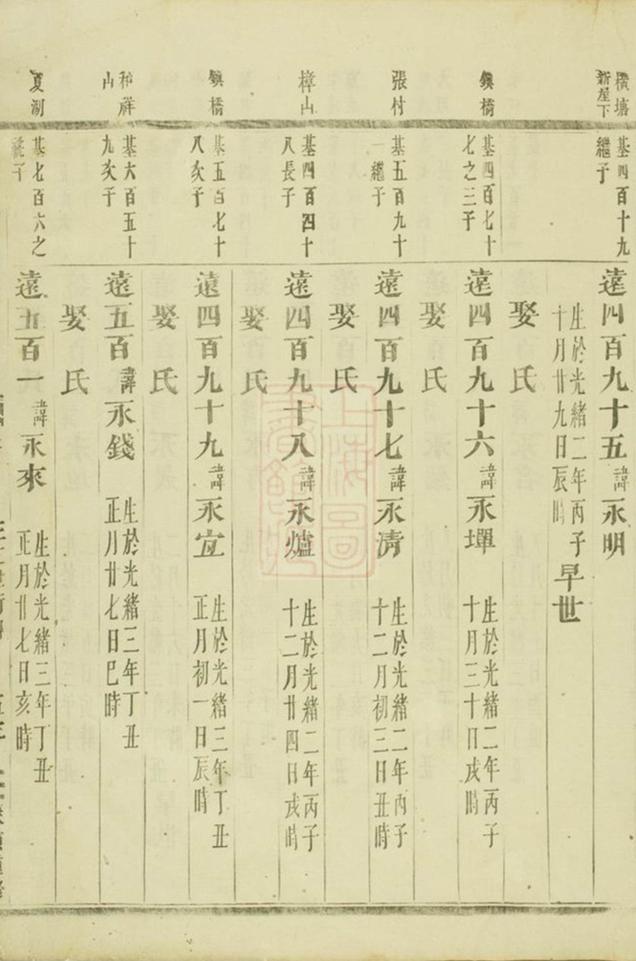 橫塘
新屋下
基四百十九
繼子
遠四百九十五 諱 永明
生於光緒二年丙子
十月廿九日辰時
早世
娶氏
鎮橋
基四百七十
七之三子
遠四百九十六 諱 永墠
生於光緒二年丙子
十月三十日戌時
娶氏
張村
基五百九十
一繼子
遠四百九十七 諱 永清
生於光緒二年丙子
十二月初三日丑時
娶氏
樟山
基四百四十
八長子
遠四百九十八 諱 永爐
生於光緒二年丙子
十二月廿四日戌時
娶氏
鎮橋
基五百七十
八次子
遠四百九十九 諱 永宜
生於光緒三年丁丑
正月初一日辰時
娶氏
和祥
山
基六百五十
九次子
遠五百 諱 永錢
生於光緒三年丁丑
正月廿七日巳時
娶氏
夏澗
基七百六之
子
遠五百一 諱 永來
生於光緒三年丁丑
正月廿七日亥時
上海圖
書館藏